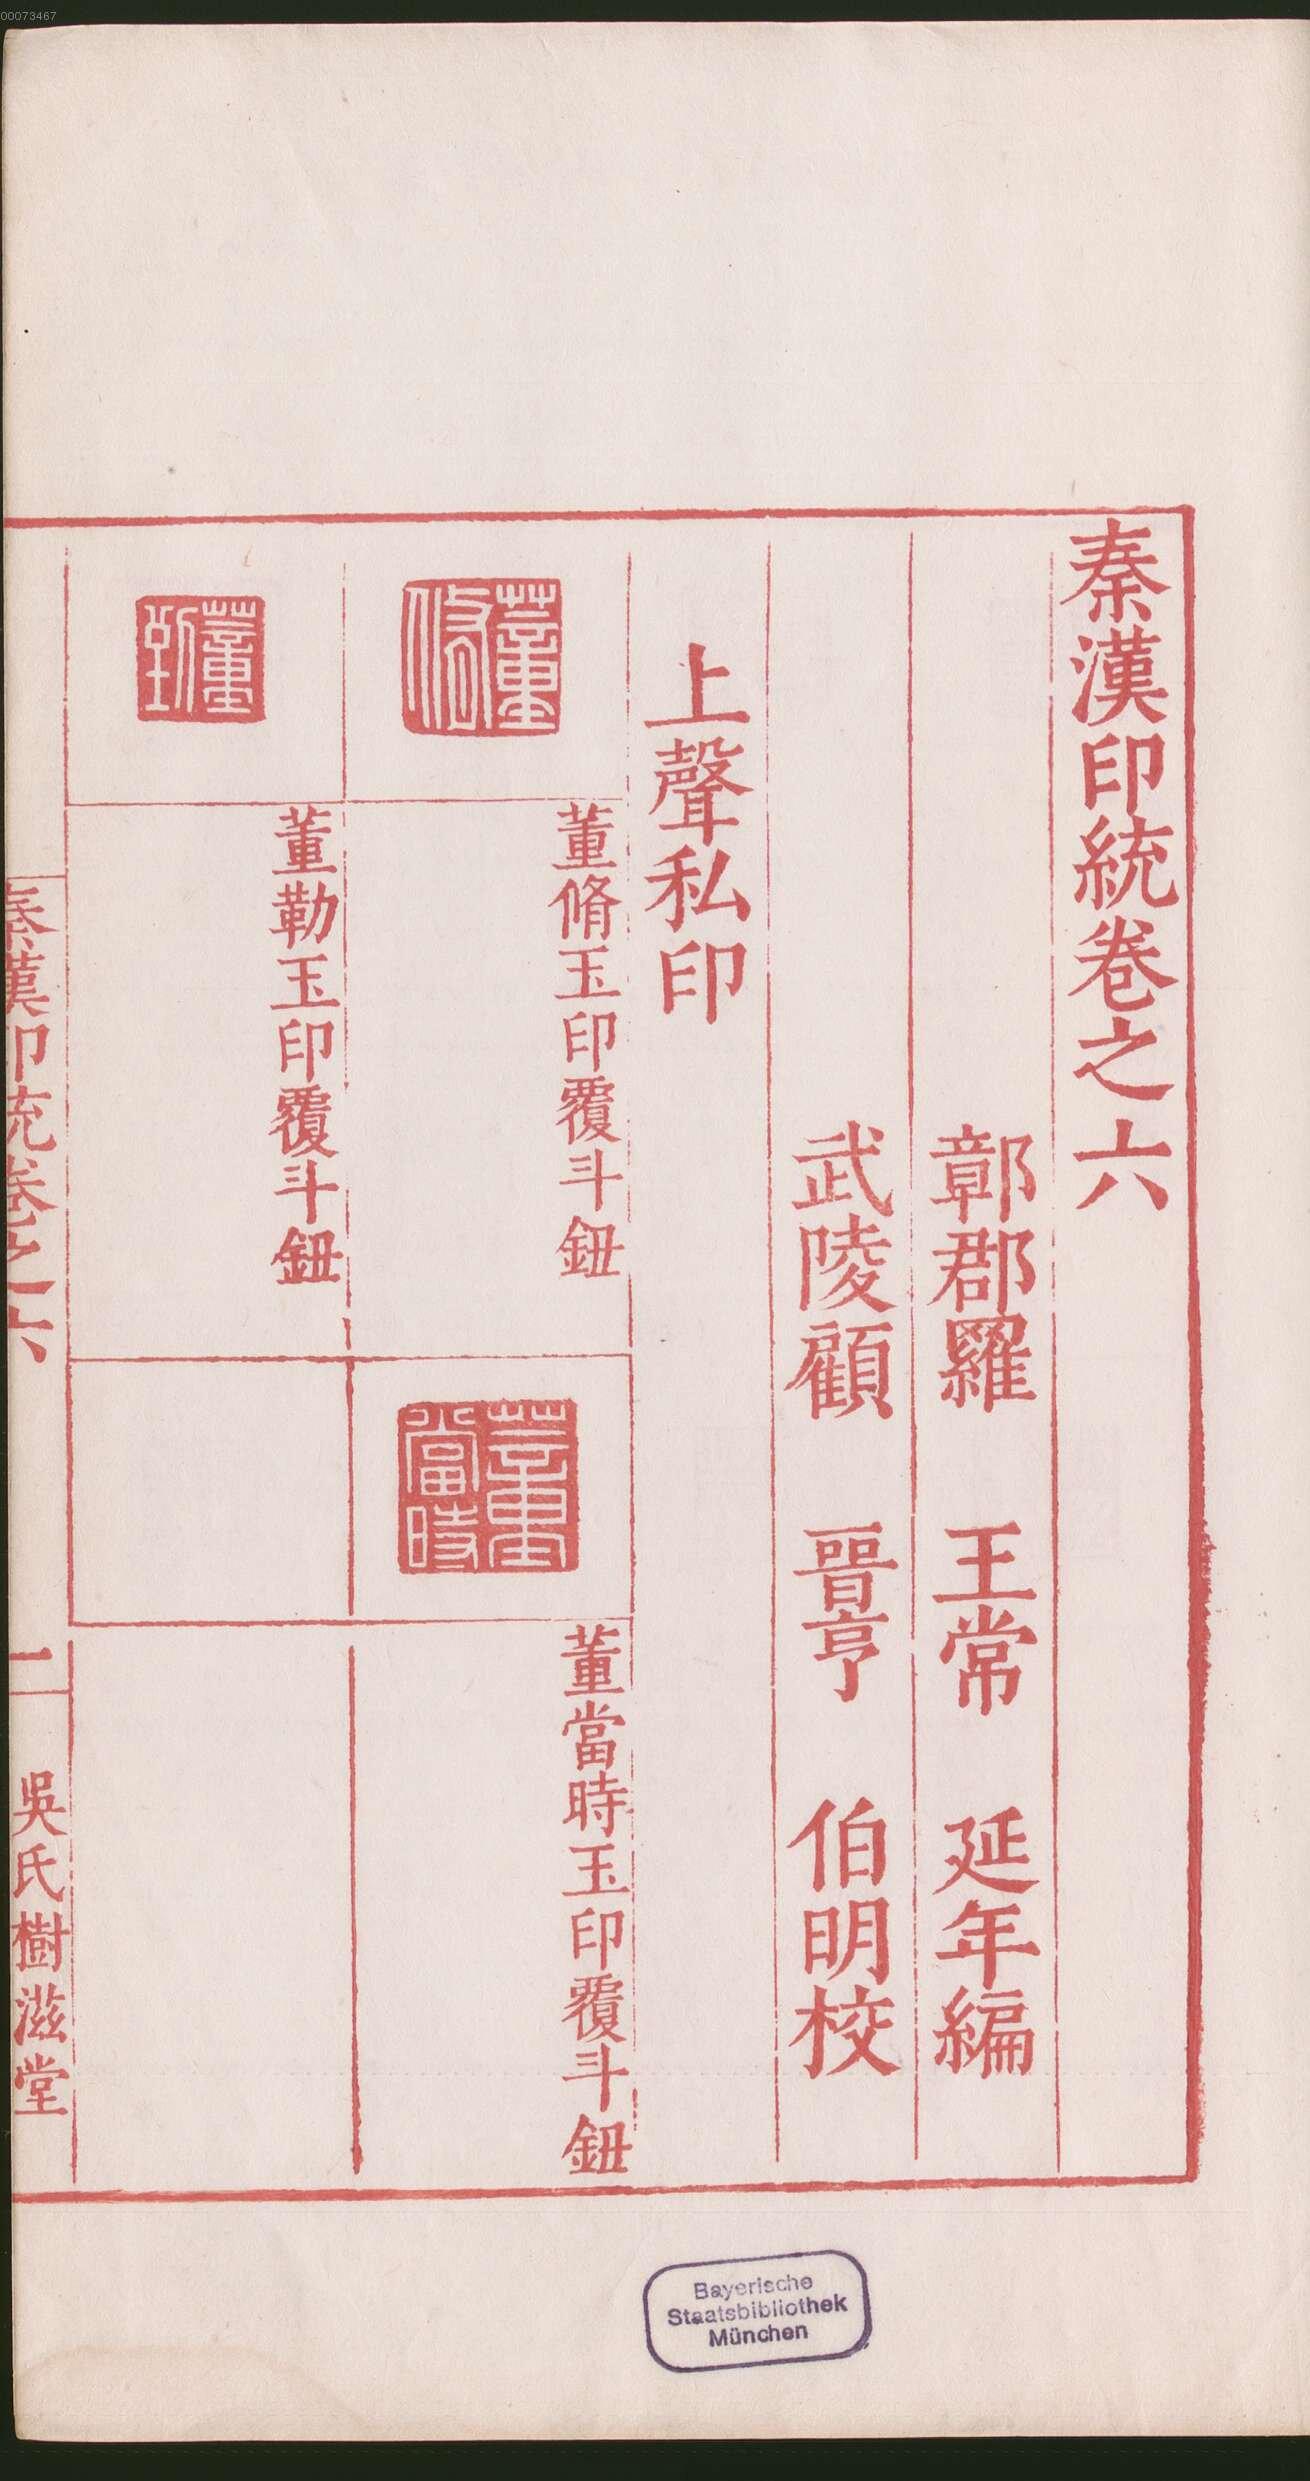 00073467
秦漢印統卷之六
鄣郡羅 王常 延年編
武陵顧 晉亨 伯明校
上聲私印
董脩
董脩玉印覆斗鈕
董當時
董當時玉印覆斗鈕
董勒
董勒玉印覆斗鈕
秦漢印統卷之六
二
吳氏樹滋堂
Bayerische
Staatsbibliothek
München